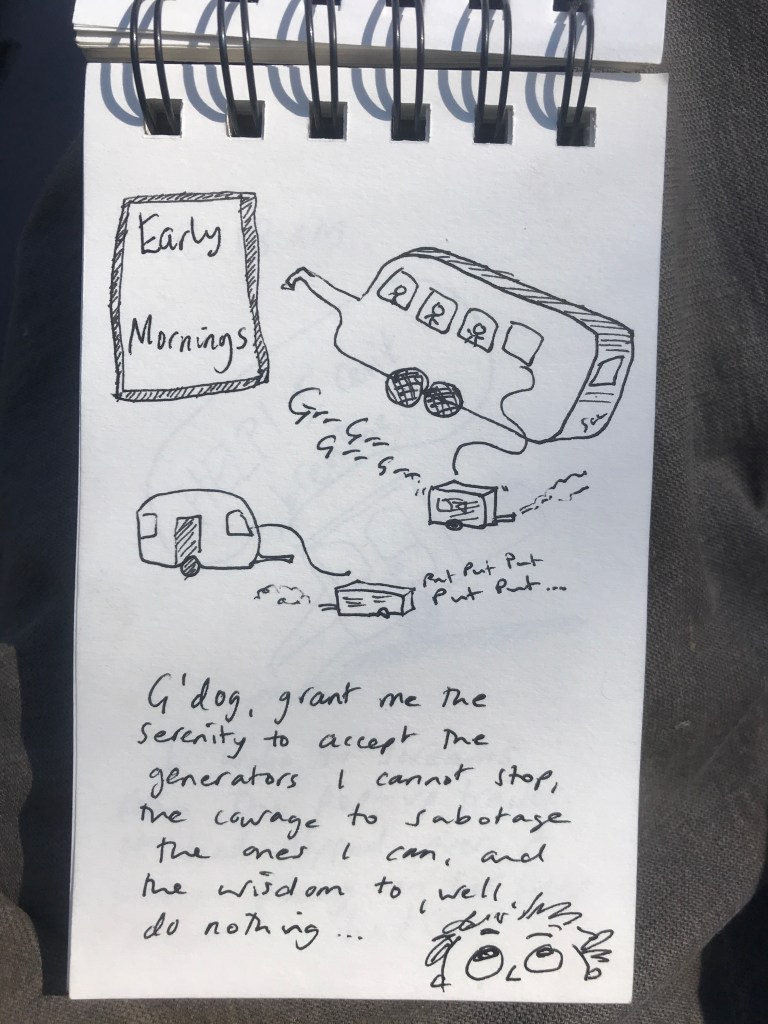 Early
Mornings
Grr Grr
Grr Grr..
Put Put Put
Put Put...
G'dog, grant me the
serenity to accept the
generators I cannot stop,
the courage to sabotage
the ones I can, and
the wisdom to, well,
do nothing...